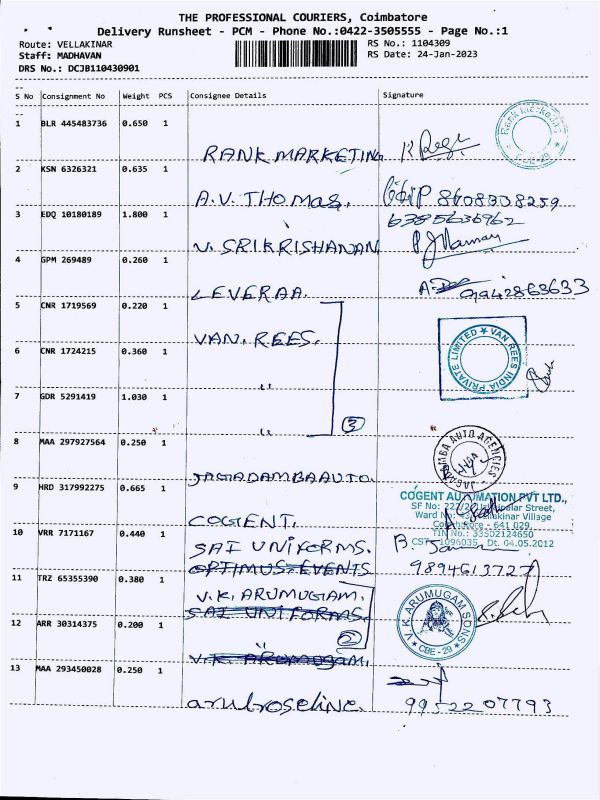 THE PROFESSIONAL COURIERS, Coimbatore
* * Delivery Runsheet - PCM - Phone No.:0422-3505555 - Page No.:1
Route: VELLAKINAR RS No.: 1104309
Staff: MADHAVAN RS Date: 24-Jan-2023
DRS No.: DCJB110430901
S No Consignment No Weight PCS Consignee Details Signature
1 BLR 445483736 0.650 1
RANK MARKETING
Rank Marketing CBE-29
2 KSN 6326321 0.635 1
A.V. THOMAS. 8608308259
3 EDQ 10180189 1.800 1 6385636962
V. SRIKRISHANAN
4 GPM 269489 0.260 1
LEVERAA. 9942863633
5 CNR 1719569 0.220 1
VAN. REES.
VAN REES INDIA PRIVATE LIMITED
6 CNR 1724215 0.360 1
"
7 GDR 5291419 1.030 1
" 3
8 MAA 297927564 0.250 1
JAGADAMBA AUTO.
JAGADAMBA AUTO AGENCIES
9 HRD 317992275 0.665 1
COGENT.
COGENT AUTOMATION PVT LTD.,
Village
Coimbatore - 641 029.
TIN No.: 33502124650
CST: 1096035, Dt. 04.05.2012
10 VRR 7171167 0.440 1
SAI UNIFORMS.
OPTIMUS EVENTS 9894613727
11 TRZ 65355390 0.380 1
V.K. ARUMUGAM.
SAI UNIFORMS.
V.K. ARUMUGAM SONS CBE-29
12 ARR 30314375 0.200 1
" 2
V.K. ARUMUGAM.
13 MAA 293450028 0.250 1
arulroseline. 9952207793